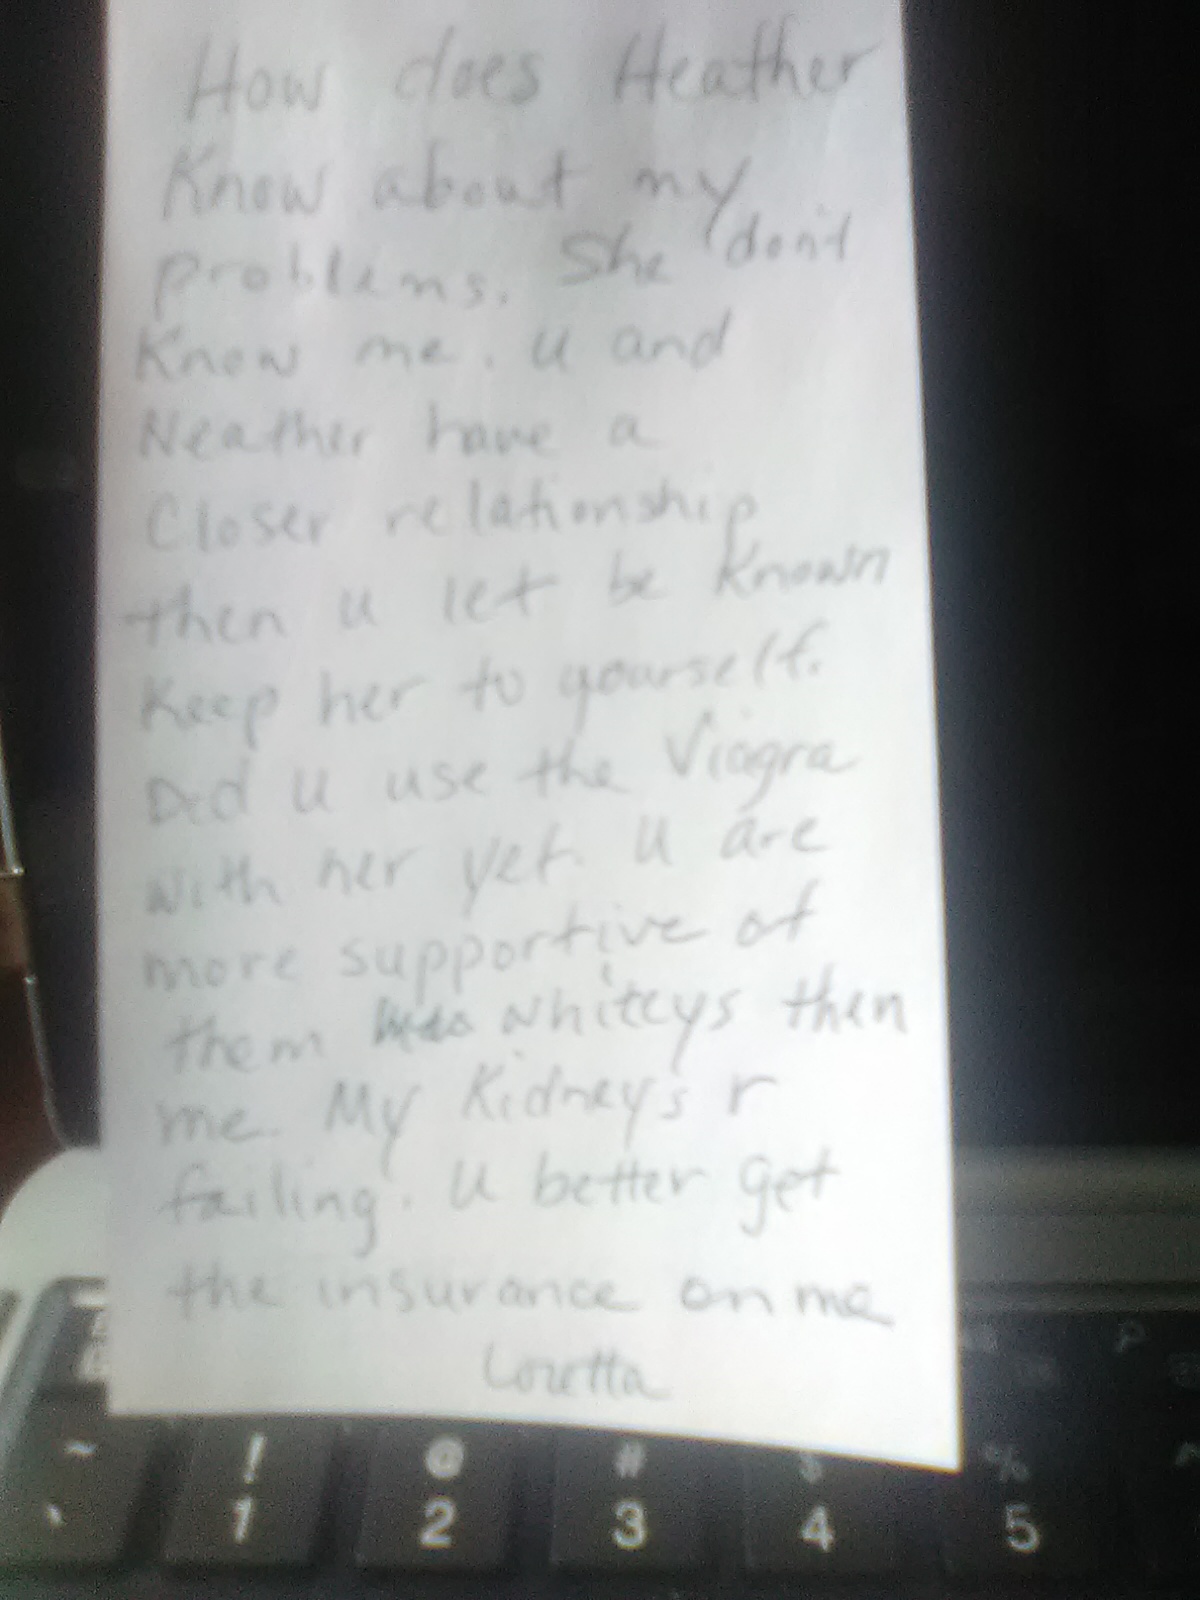 How does Heather
Know about my
problems. She don't
Know me. u and
Neather have a
Closer relationship
then u let be known
Keep her to yourself.
Did u use the Viagra
with her yet. u are
more supportive of
them Whiteys then
me. My Kidneys r
failing. u better get
the insurance on me
Loretta
~ ! @ # $ %
` 1 2 3 4 5